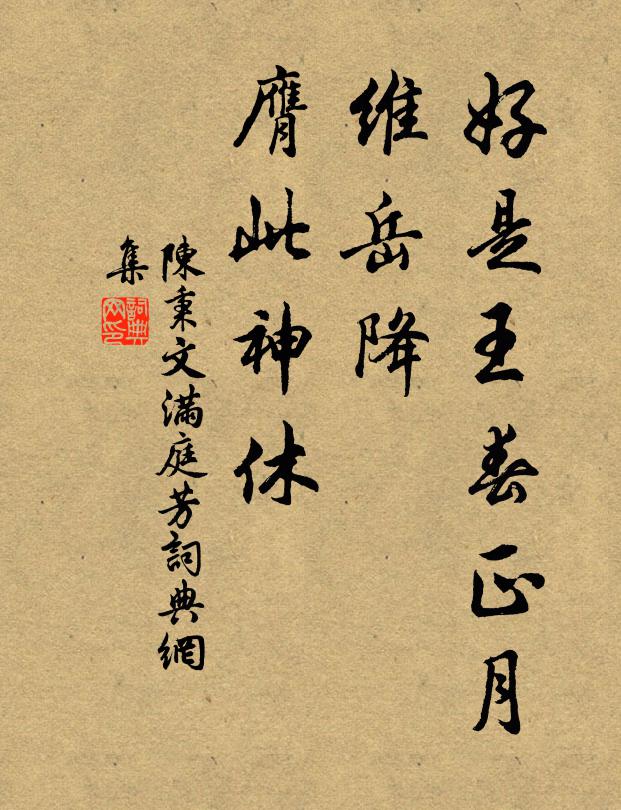 好是王春正月
維岳降
膺此神休
陳秉文滿庭芳詞典網
集
詞典
网印